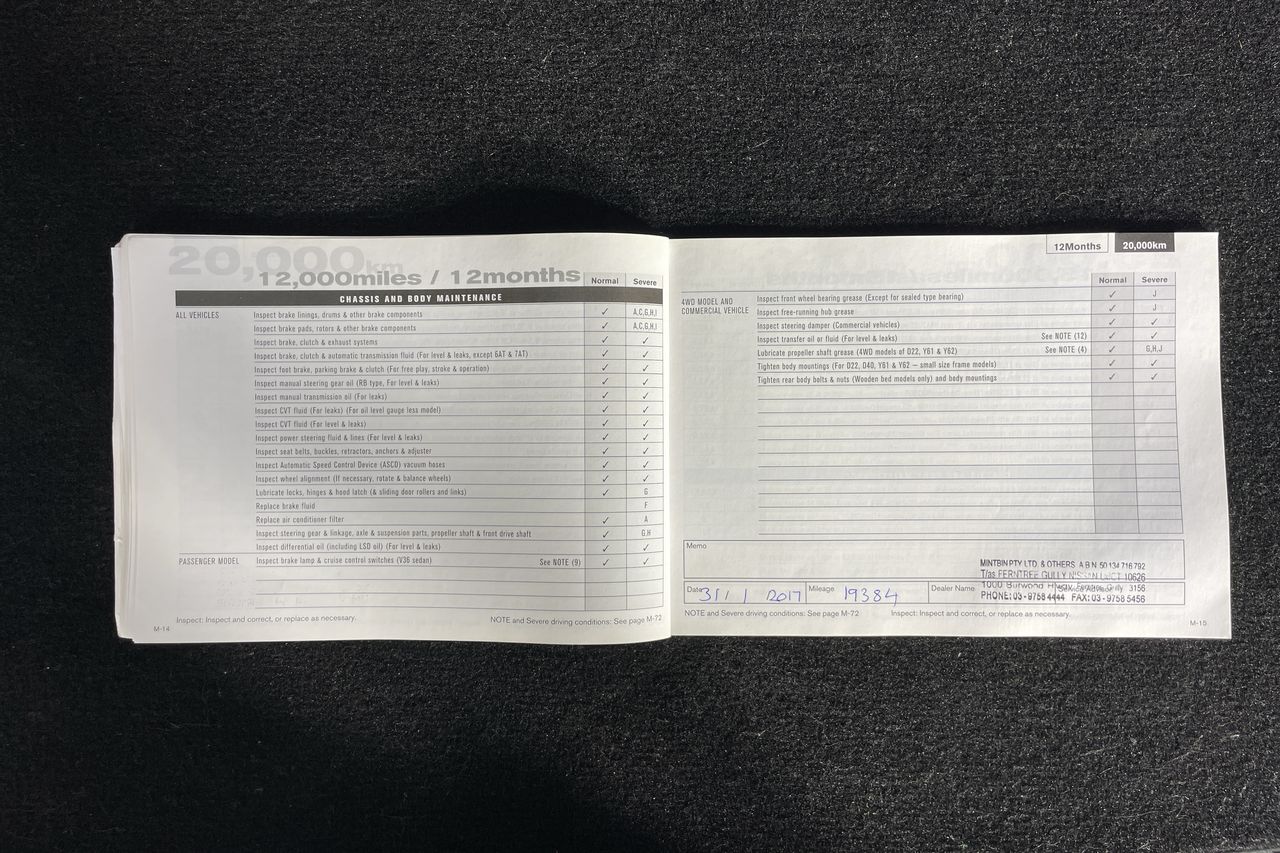 20,000km
12,000miles / 12months
Normal Severe
CHASSIS AND BODY MAINTENANCE
ALL VEHICLES Inspect brake linings, drums & other brake components ✓ A,C,G,H,I
Inspect brake pads, rotors & other brake components ✓ A,C,G,H,I
Inspect brake, clutch & exhaust systems ✓ ✓
Inspect brake, clutch & automatic transmission fluid (For level & leaks, except 6AT & 7AT) ✓ ✓
Inspect foot brake, parking brake & clutch (For free play, stroke & operation) ✓ ✓
Inspect manual steering gear oil (RB type, For level & leaks) ✓ ✓
Inspect manual transmission oil (For leaks) ✓ ✓
Inspect CVT fluid (For leaks) (For oil level gauge less model) ✓ ✓
Inspect CVT fluid (For level & leaks) ✓ ✓
Inspect power steering fluid & lines (For level & leaks) ✓ ✓
Inspect seat belts, buckles, retractors, anchors & adjuster ✓ ✓
Inspect Automatic Speed Control Device (ASCD) vacuum hoses ✓ ✓
Inspect wheel alignment (If necessary, rotate & balance wheels) ✓ ✓
Lubricate locks, hinges & hood latch (& sliding door rollers and links) ✓ G
Replace brake fluid F
Replace air conditioner filter ✓ A
Inspect steering gear & linkage, axle & suspension parts, propeller shaft & front drive shaft ✓ G,H
Inspect differential oil (including LSD oil) (For level & leaks) ✓ ✓
PASSENGER MODEL Inspect brake lamp & cruise control switches (V36 sedan) See NOTE (9) ✓ ✓
Inspect: Inspect and correct, or replace as necessary. NOTE and Severe driving conditions: See page M-72
M-14
12Months 20,000km
Normal Severe
4WD MODEL AND Inspect front wheel bearing grease (Except for sealed type bearing) ✓ J
COMMERCIAL VEHICLE Inspect free-running hub grease ✓ J
Inspect steering damper (Commercial vehicles) ✓ ✓
Inspect transfer oil or fluid (For level & leaks) See NOTE (12) ✓ ✓
Lubricate propeller shaft grease (4WD models of D22, Y61 & Y62) See NOTE (4) ✓ G,H,J
Tighten body mountings (For D22, D40, Y61 & Y62 – small size frame models) ✓ ✓
Tighten rear body bolts & nuts (Wooden bed models only) and body mountings ✓ ✓
Memo
MINTBIN PTY LTD, & OTHERS A B N 50 134 716 792
T/as FERNTREE GULLY NISSAN LMCT 10626
1000 Burwood Hway, Ferntree Gully 3156
PHONE: 03 - 9758 4444 FAX: 03 - 9758 5456
Date 31/1/2017 Mileage 19384 Dealer Name Service Advisor
NOTE and Severe driving conditions: See page M-72 Inspect: Inspect and correct, or replace as necessary.
M-15